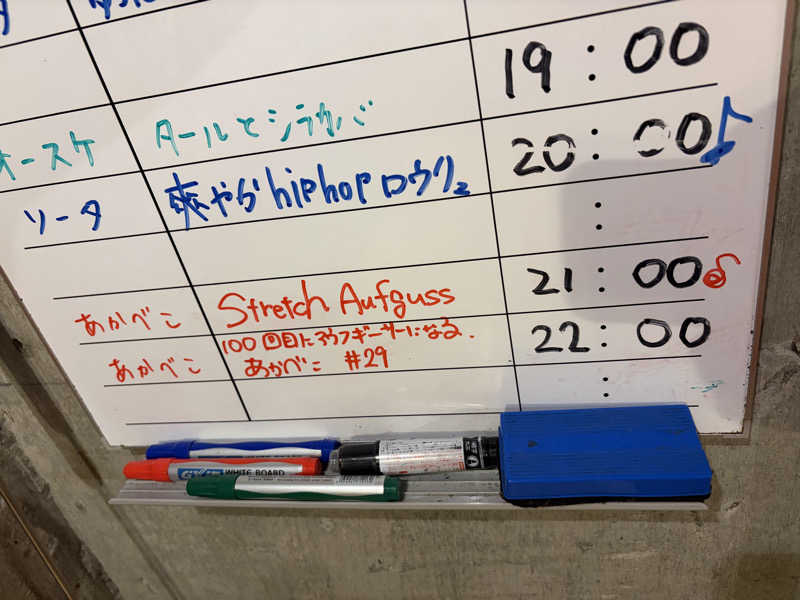 19:00
オースケ タールとシラカバ
20:00♪
ソータ 爽やか hiphop ロウリュ
:
あかべこ Stretch Aufguss
21:00
あかべこ 100回目にアウフギーサーになる。
あかべこ #29
22:00
:
WHITE BOARD